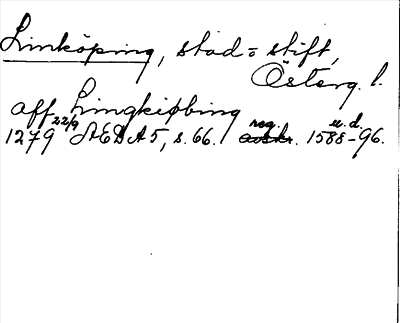 Linköping, stad = stift,
Österg. l.
aff Lingkiøbing
1279 22/9 ÆDA 5, s. 66. reg. avskr. u.d. 1588-96.